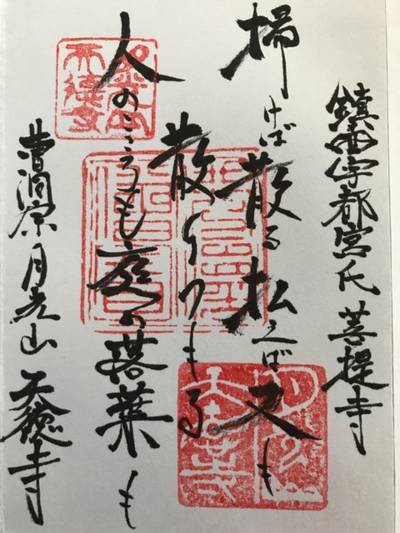 鎮西宇都宮氏 菩提寺
掃けば散る払へば又も
散りつもる
人のこころも庭の落葉も
曹洞宗 月光山 天徳寺